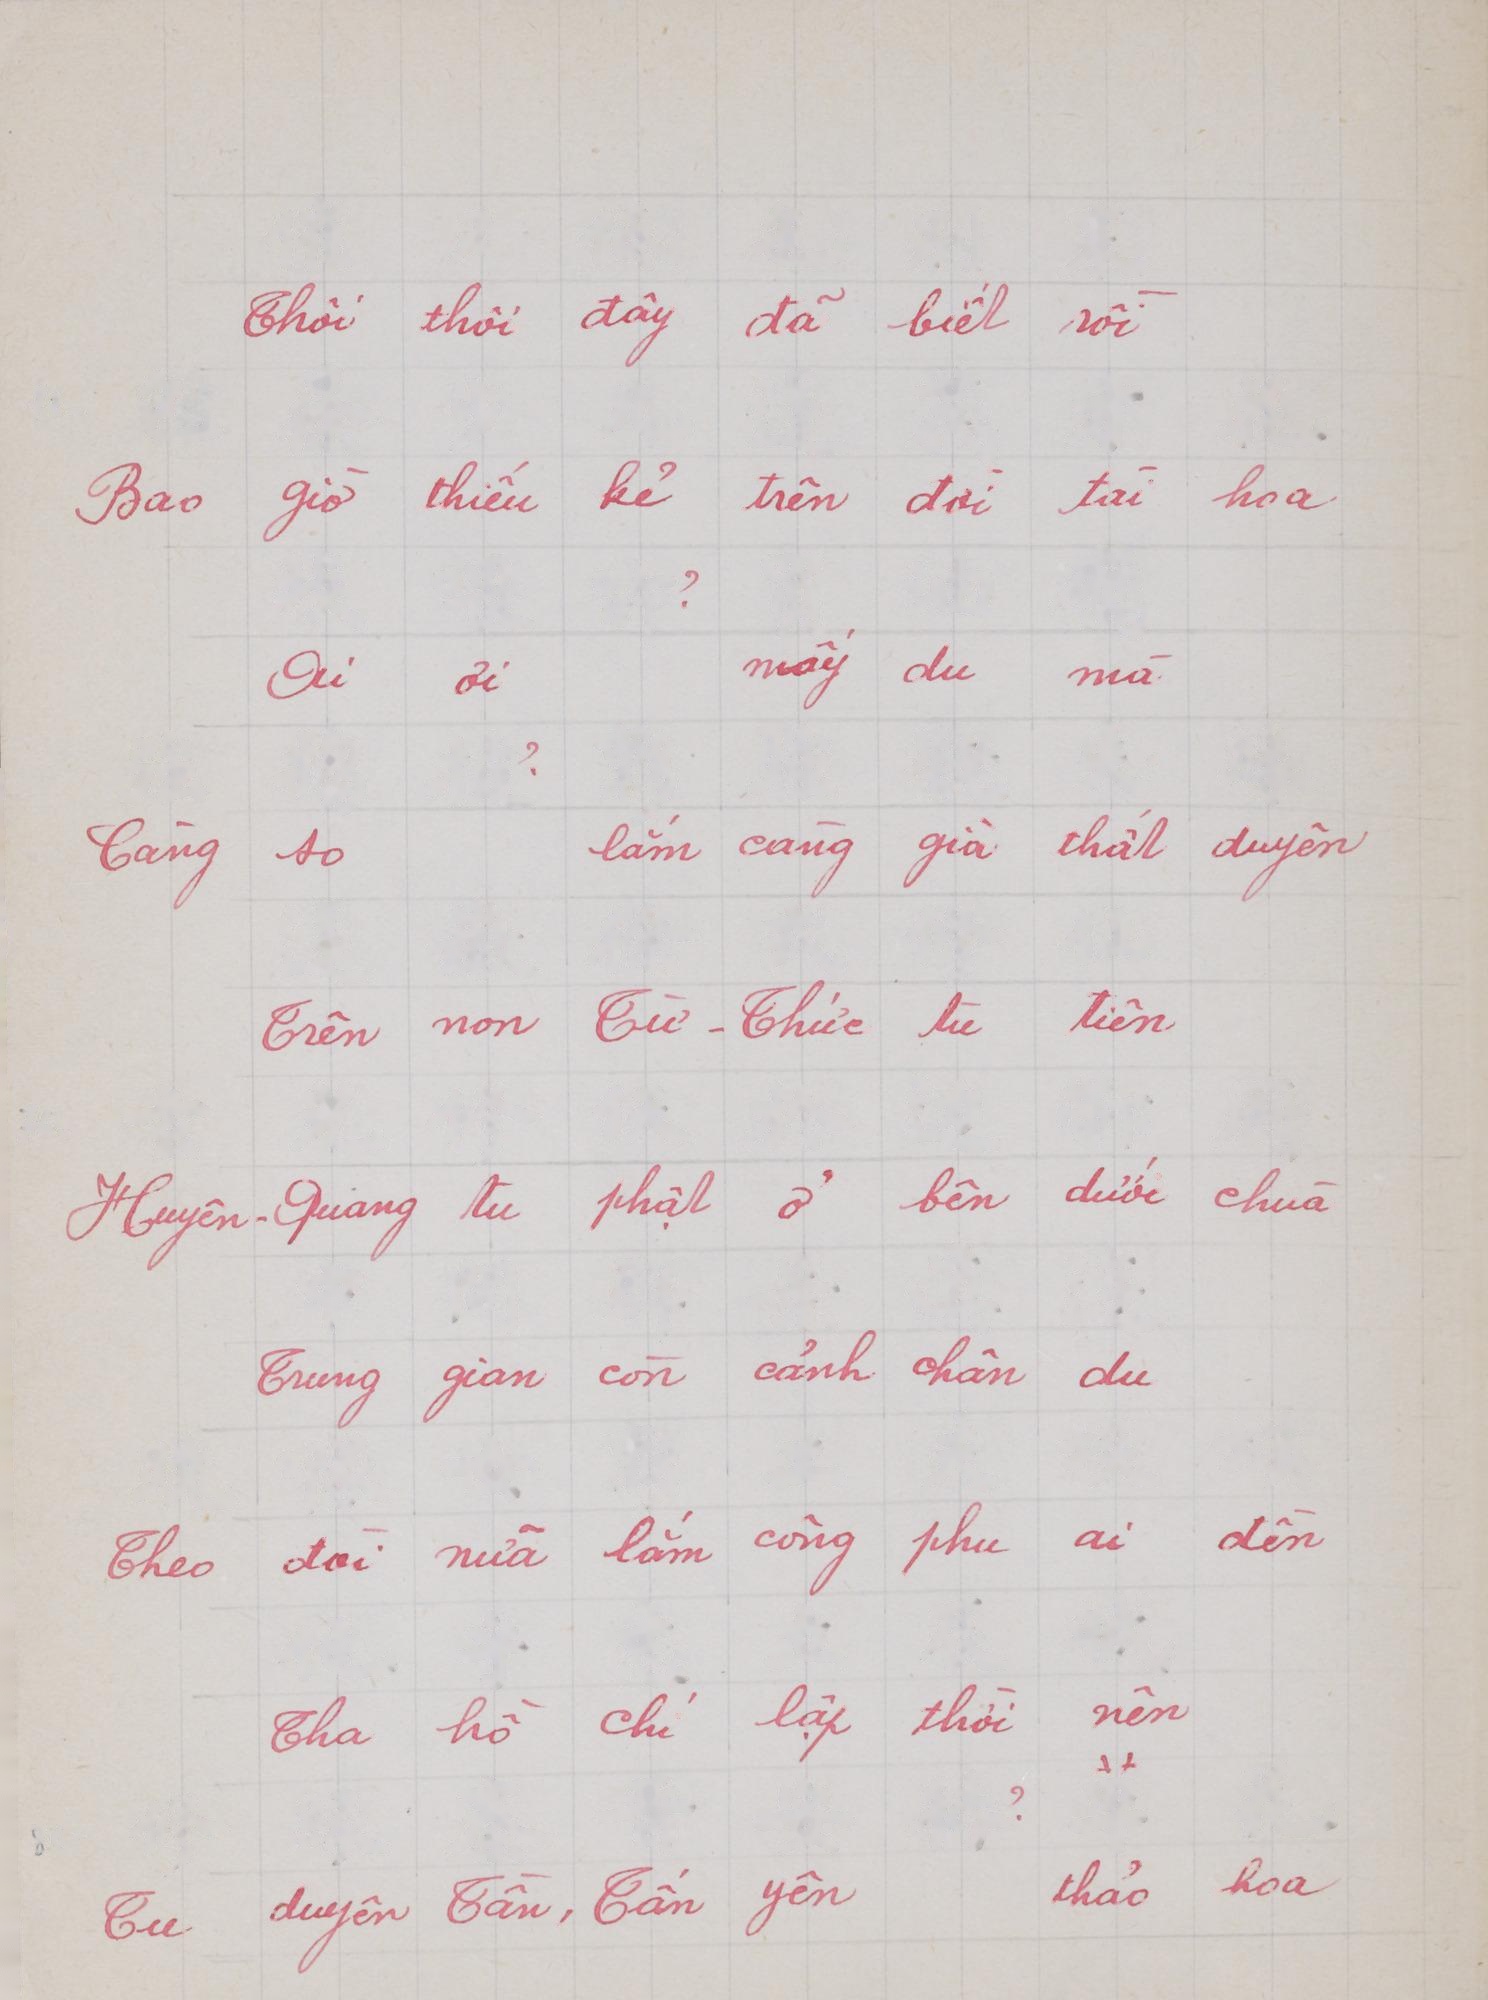 Thôi thôi đây đã biết rồi
Bao giờ thiếu kẻ trên đời tài hoa
?
Ai ơi mấy du mà
?
Càng so lắm càng già thất duyên
Trên non Từ-Thức tu tiên
Huyền-Quang tu phật ở bên dưới chùa
Trung gian còn cảnh chân du
Theo đòi nữa lắm công phu ai đền
Tha hồ chí lập thời nên
?
Tu duyên Tần, Tấn yên thảo hoa